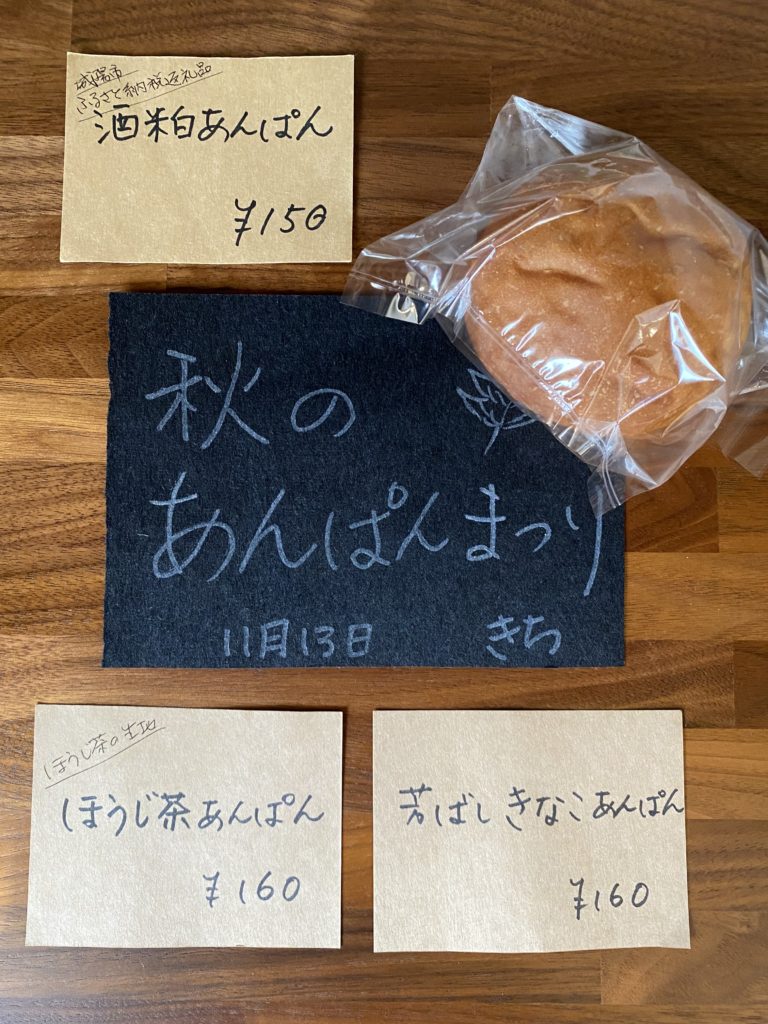 城陽市
ふるさと納税返礼品
酒粕あんぱん
¥150
秋の
あんぱんまつり
11月13日 きち
ほうじ茶の生地
ほうじ茶あんぱん
¥160
芳ばしきなこあんぱん
¥160